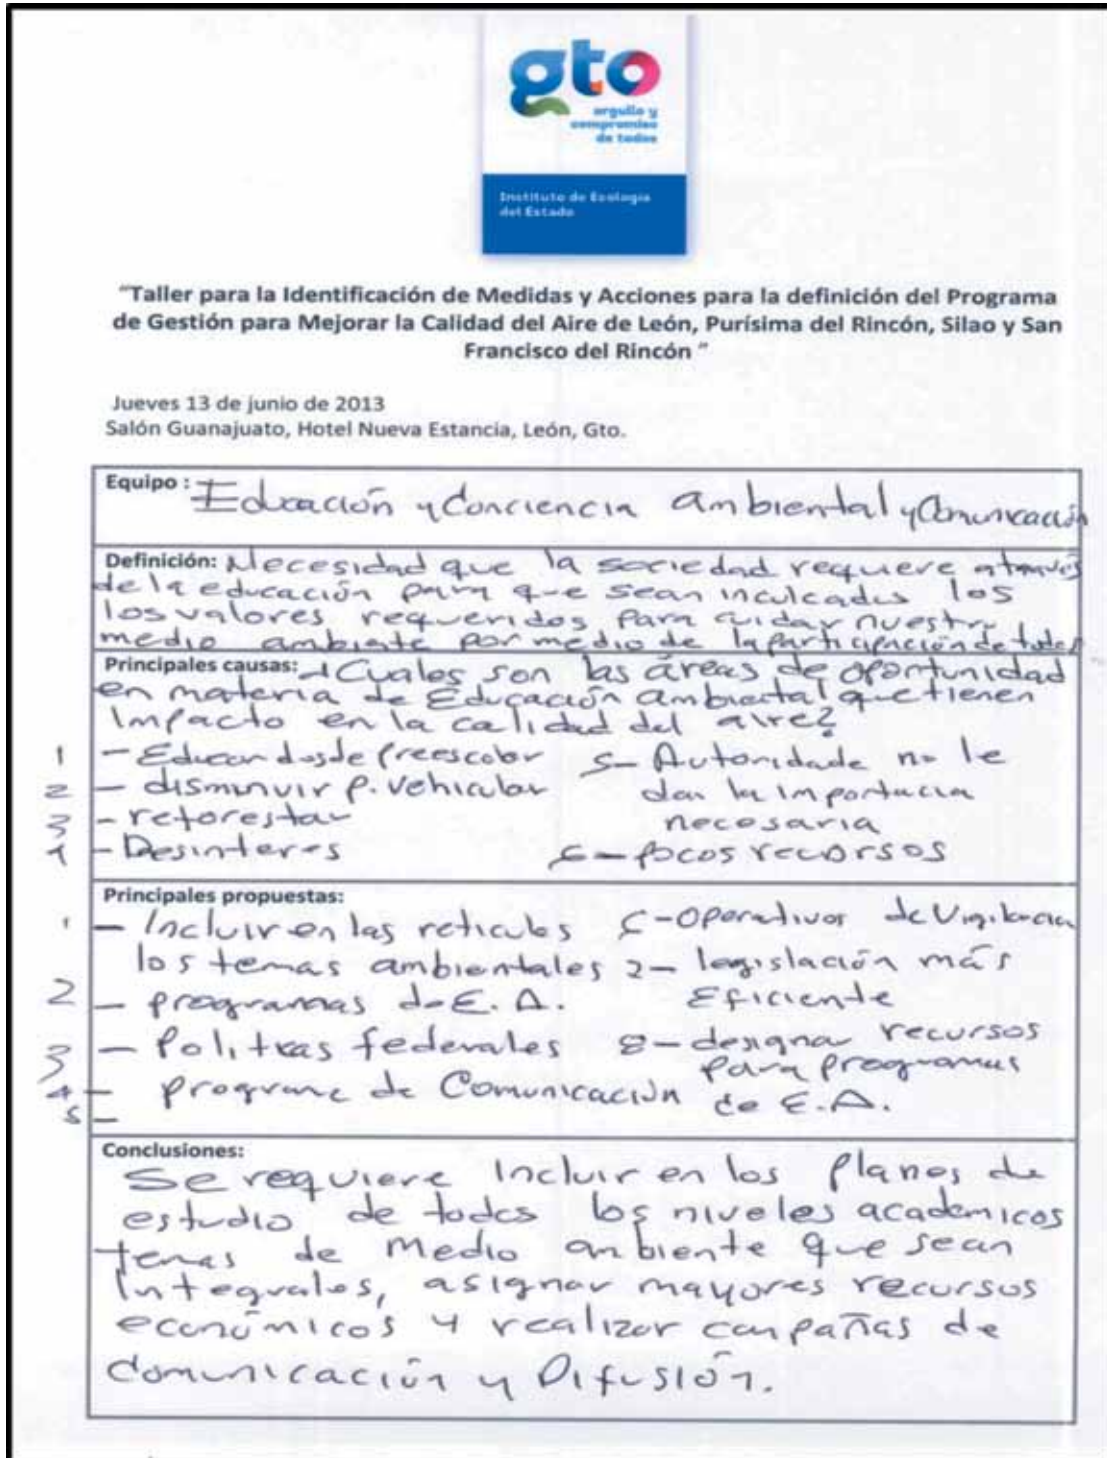 gto
orgullo y
compromiso
de todos
Instituto de Ecología
del Estado
"Taller para la Identificación de Medidas y Acciones para la definición del Programa
de Gestión para Mejorar la Calidad del Aire de León, Purísima del Rincón, Silao y San
Francisco del Rincón"
Jueves 13 de junio de 2013
Salón Guanajuato, Hotel Nueva Estancia, León, Gto.
Equipo: Educación y Conciencia Ambiental y Comunicación
Definición: Necesidad que la sociedad requiere através
de la educación para que sean inculcados los
los valores requeridos para cuidar nuestro
medio ambiente por medio de la participación de todos
Principales causas: ¿Cuales son las áreas de oportunidad
en materia de Educación Ambiental que tienen
Impacto en la calidad del aire?
1 - Educar desde preescolar
2 - disminuir p. vehicular
3 - reforestar
4 - Desinteres
5- Autoridade no le
dan la importancia
necesaria
6- pocos recursos
Principales propuestas:
1 - Incluir en las reticulas
los temas ambientales
2 - programas de E. A.
3 - Politicas federales
4 - programa de Comunicación
5 -
6- Operativos de Vigilancia
7- legislación más
Eficiente
8- designar recursos
para programas
de E.A.
Conclusiones:
Se requiere Incluir en los planes de
estudio de todos los niveles academicos
temas de Medio ambiente que sean
Integrales, asignar mayores recursos
económicos y realizar campañas de
Comunicación y Difusión.